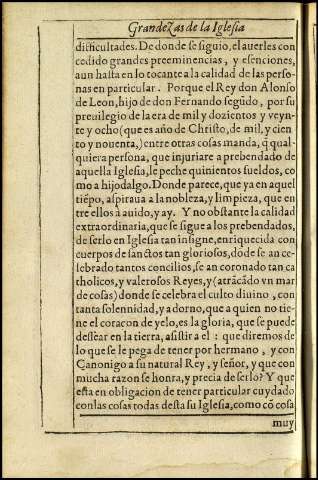 Grandezas de la Iglesia
difficultades. De donde se siguio, el auerles con
cedido grandes preeminencias, y esenciones,
aun hasta en lo tocante a la calidad de las perso-
nas en particular. Porque el Rey don Alonso
de Leon, hijo de don Fernando segũdo, por su
preuilegio de la era de mil y dozientos y veyn-
te y ocho (que es año de Christo, de mil, y cien
to y nouenta,) entre otras cosas manda, q̃ qual-
quiera persona, que injuriare a prebendado de
aquella Iglesia, le peche quinientos sueldos, co
mo a hijodalgo. Donde parece, que ya en aquel
tiẽpo, aspiraua a la nobleza, y limpieza, que en
tre ellos a auido, y ay. Y no obstante la calidad
extraordinaria, que se sigue a los prebendados,
de serlo en Iglesia tan insigne, enriquecida con
cuerpos de sanctos tan gloriosos, dõde se an ce-
lebrado tantos concilios, se an coronado tan ca
tholicos, y valerosos Reyes, y (atracãdo vn mar
de cosas) donde se celebra el culto diuino, con
tanta solennidad, y adorno, que a quien no tie-
ne el coracon de yelo, es la gloria, que se puede
dessear en la tierra, asistir a el: que diremos de
lo que se le pega de tener por hermano, y con
Canonigo a su natural Rey, y señor, y que con
mucha razon se honra, y precia de serlo? Y que
esta en obligacion de tener particular cuydado
con las cosas todas desta su Iglesia, como cõ cosa
muy